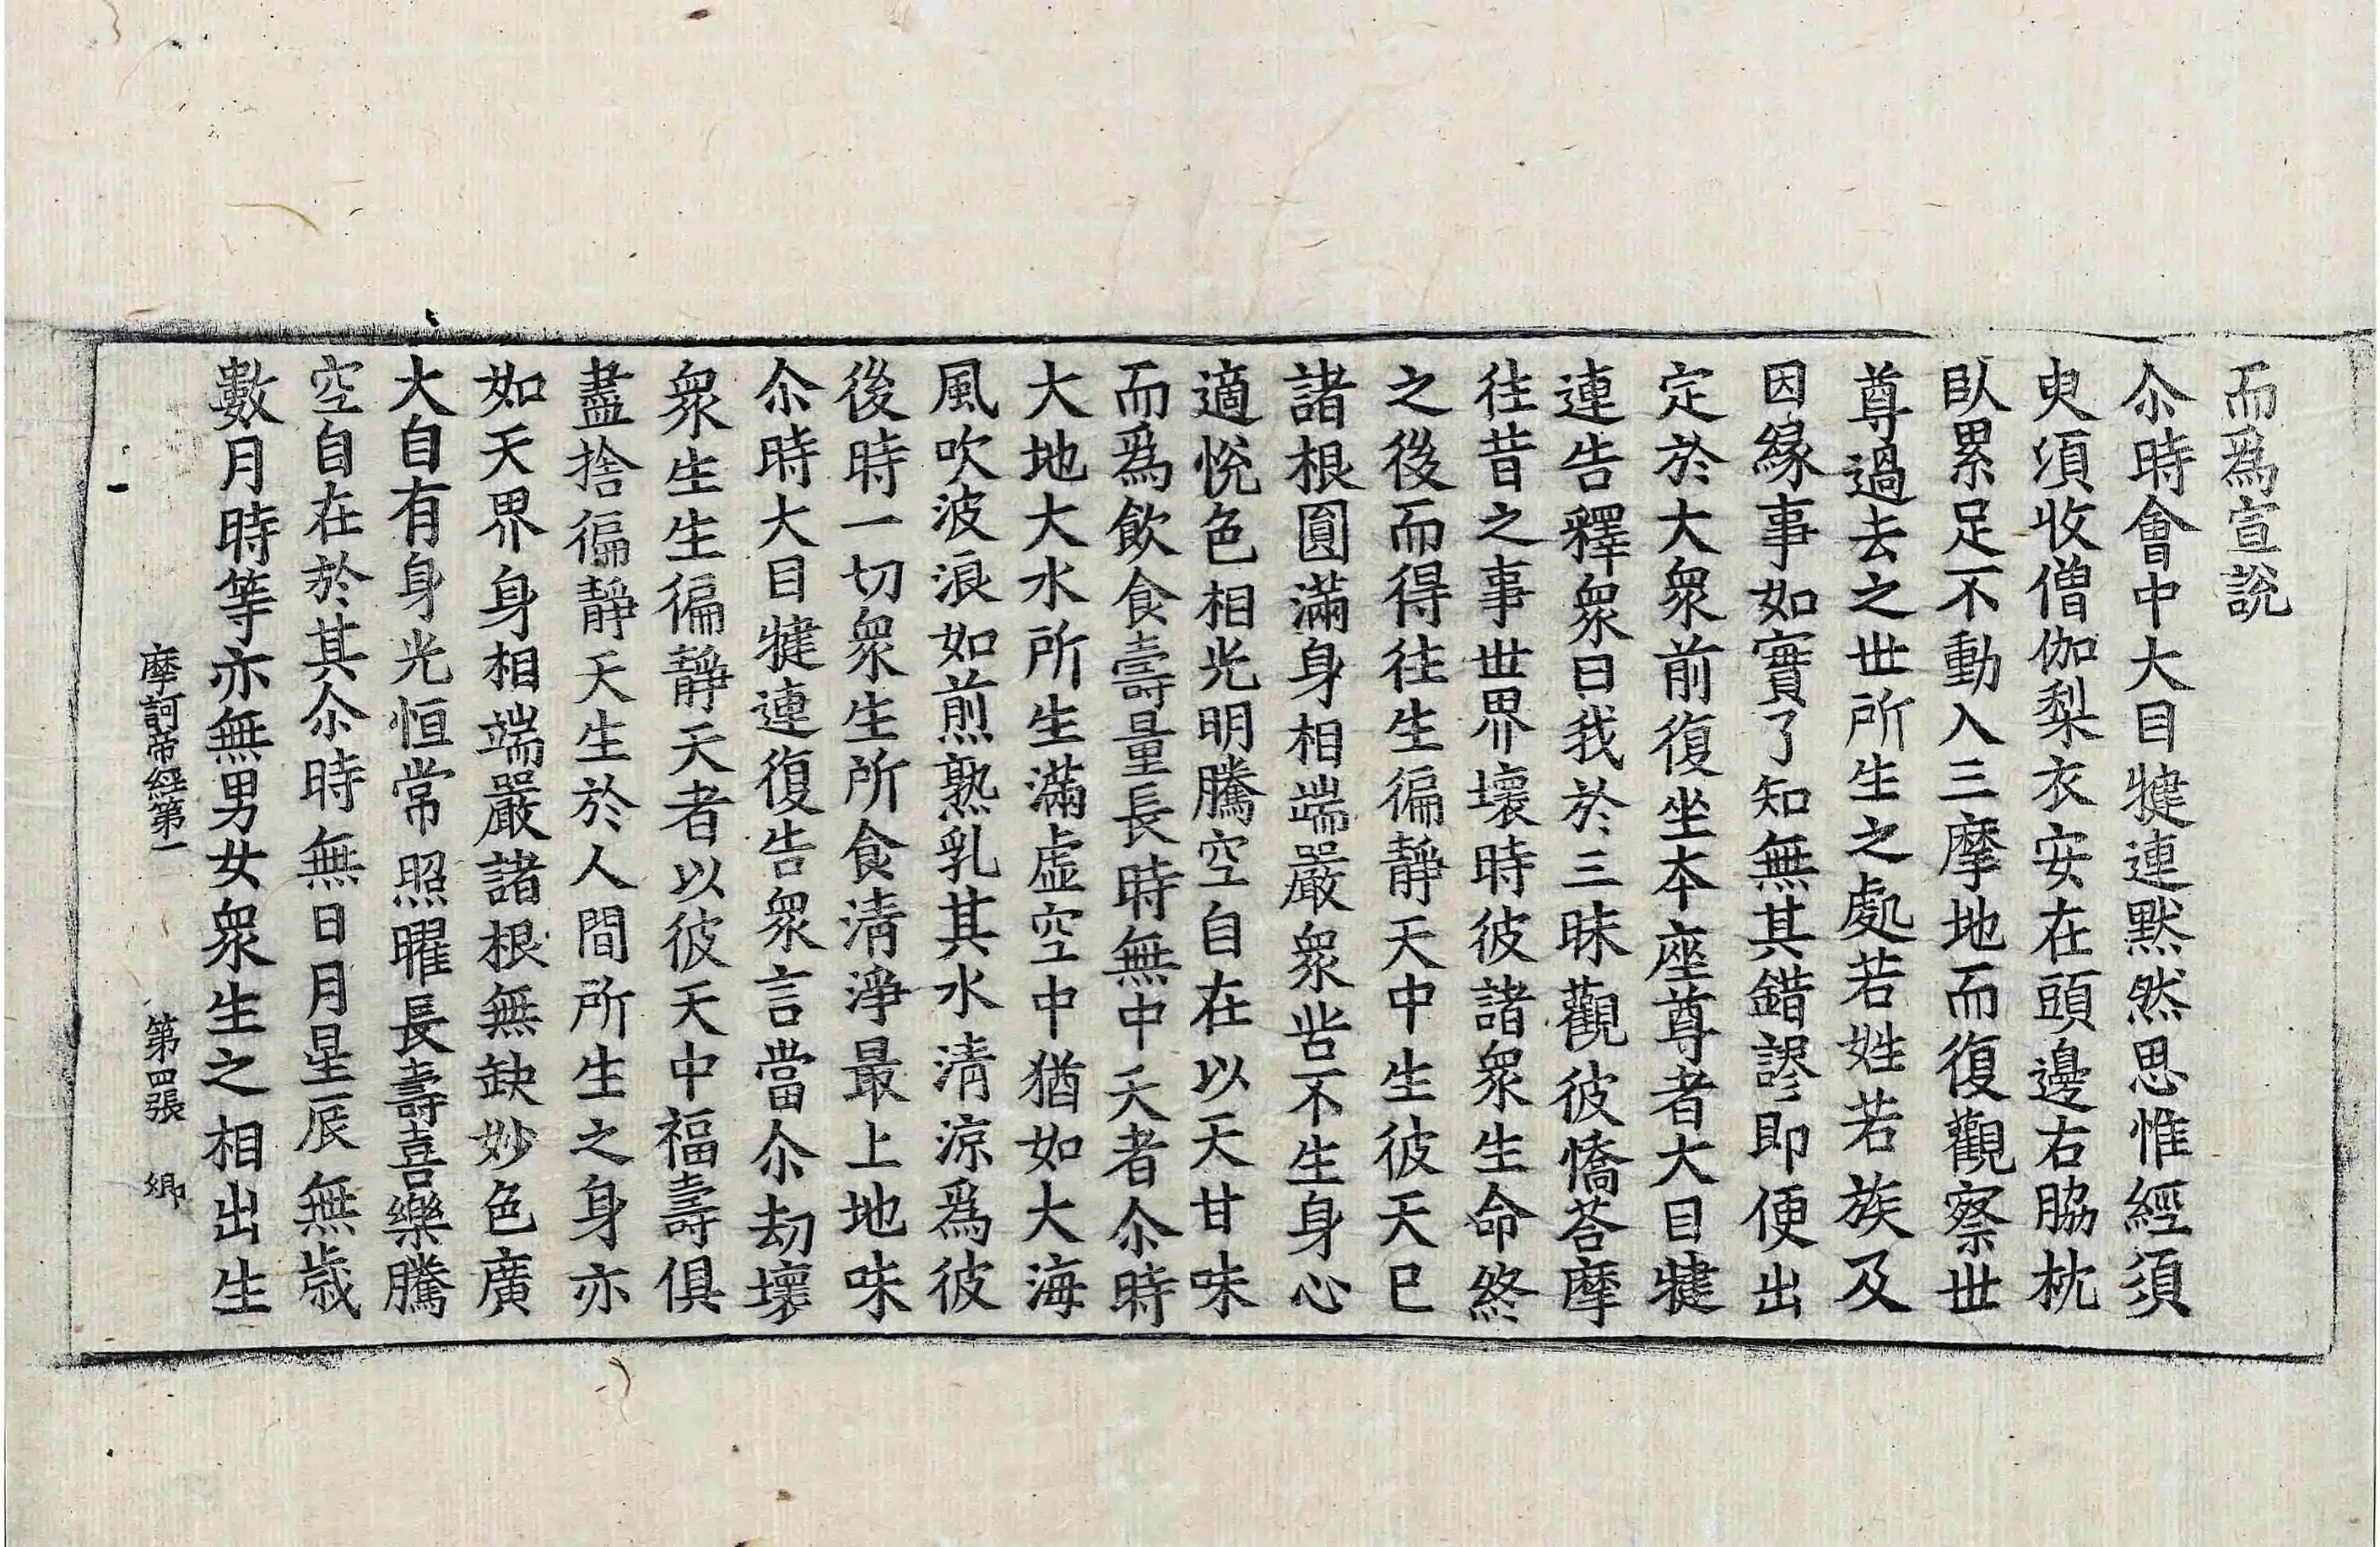 而爲宣說
尒時會中大目犍連黙然思惟經須
臾須收僧伽梨衣安在頭邊右脇枕
臥累足不動入三摩地而復觀察世
尊過去之世所生之處若姓若族及
因緣事如實了知無其錯謬即便出
定於大衆前復坐本座尊者大目犍
連告釋衆曰我於三昧觀彼憍荅摩
往昔之事世界壞時彼諸衆生命終
之後而得往生徧靜天中生彼天已
諸根圓滿身相端嚴衆苦不生身心
適悅色相光明騰空自在以天甘味
而爲飲食壽量長時無中夭者尒時
大地大水所生滿虛空中猶如大海
風吹波浪如煎熟乳其水清涼爲彼
後時一切衆生所食清淨最上地味
尒時大目犍連復告衆言當尒劫壞
衆生生徧靜天者以彼天中福壽俱
盡捨徧靜天生於人間所生之身亦
如天界身相端嚴諸根無缺妙色廣
大自有身光恒常照曜長壽喜樂騰
空自在於其尒時無日月星辰無歲
數月時等亦無男女衆生之相出生
摩訶帝經第一 第四張 鄉